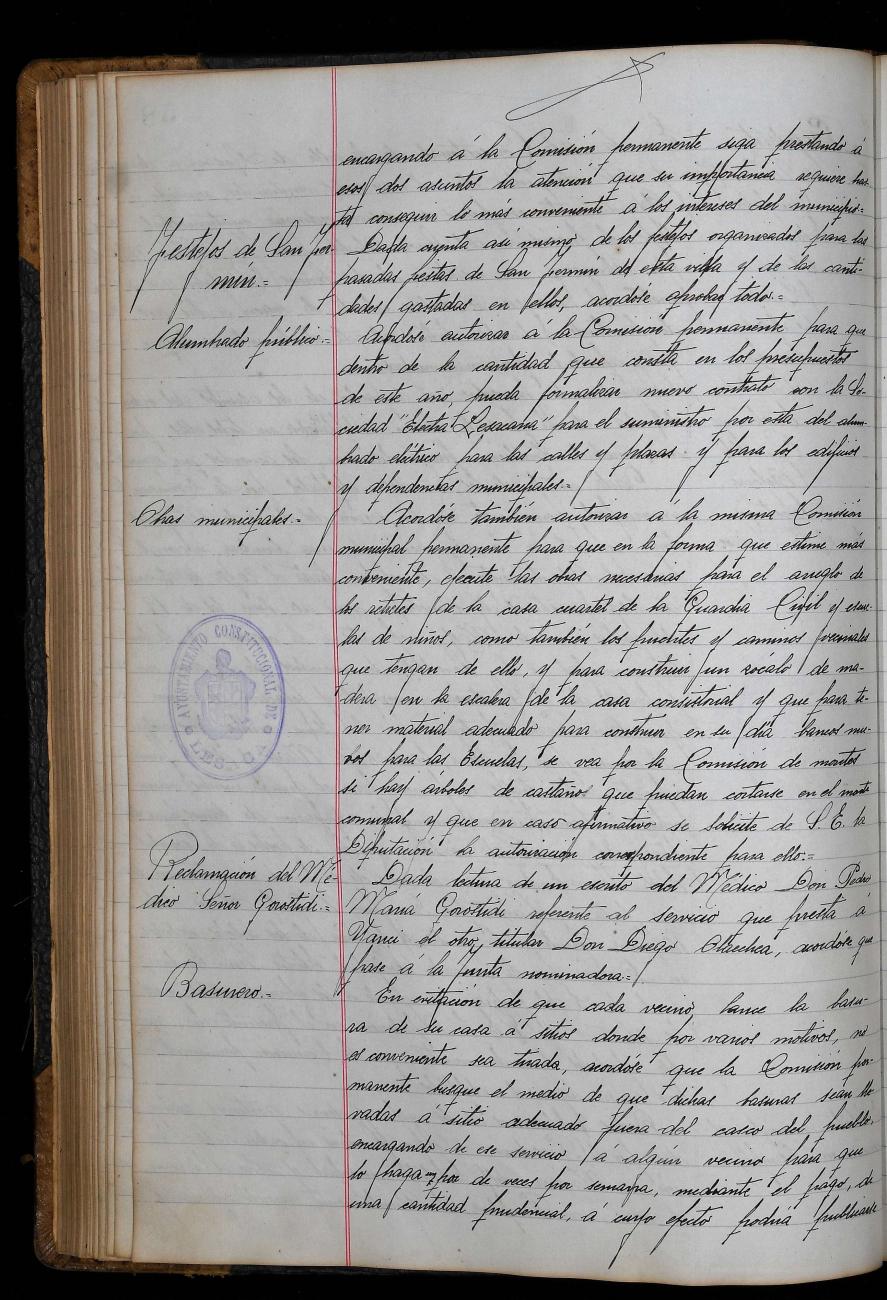 encargando á la Comisión permanente siga prestando á
esos dos asuntos la atención que su importancia requiere has-
ta conseguir lo más conveniente á los intereses del municipio.=
Festejos de San Fer-
min.=
Dada cuenta asi mismo de los festejos organizados para las
pasadas fiestas de San Fermín de esta villa y de las canti-
dades gastadas en ellos, acordóse aprobar todo.=
Alumbrado público.=
Acordóse autorizar á la Comisión permanente para que
dentro de la cantidad que consta en los presupuestos
de este año, pueda formalizar nuevo contrato con la So-
ciedad "Electra Lesacana" para el suministro por esta del alum-
brado eléctrico para las calles y plazas y para los edificios
y dependencias municipales.=
Obras municipales.=
Acordóse también autorizar á la misma Comisión
municipal permanente para que en la forma que estime más
conveniente, ejecute las obras necesarias para el arreglo de
los retretes de la casa cuartel de la Guardia Civil y escue-
las de niños, como también los puentes y caminos vecinales
que tengan de ello, y para construir un zócalo de ma-
dera en la escalera de la casa consistorial y que para te-
ner material adecuado para construir en su día bancos nue-
vos para las Escuelas, se vea por la Comisión de montes
si hay árboles de castaños que puedan cortarse en el monte
comunal y que en caso afirmativo se solicite de S. E. la
Diputación la autorización correspondiente para ello.=
AYUNTAMIENTO CONSTITUCIONAL DE
LESACA
Reclamación del Mé-
dico Señor Gorostidi.=
Dada lectura de un escrito del Médico Don Pedro
María Gorostidi referente al servicio que presta á
Yanci el otro titular Don Diego Olaechea, acordóse que
pase á la Junta nominadora.=
Basurero.=
En evitación de que cada vecino lance la basu-
ra de su casa á sitios donde por varios motivos, no
es conveniente sea tirada, acordóse que la Comisión per-
manente busque el medio de que dichas basuras sean lle-
vadas á sitio adecuado fuera del casco del pueblo,
encargando de ese servicio á algun vecino para que
lo haga un par de veces por semana, mediante el pago, de
una cantidad prudencial, á cuyo efecto podria publicarse